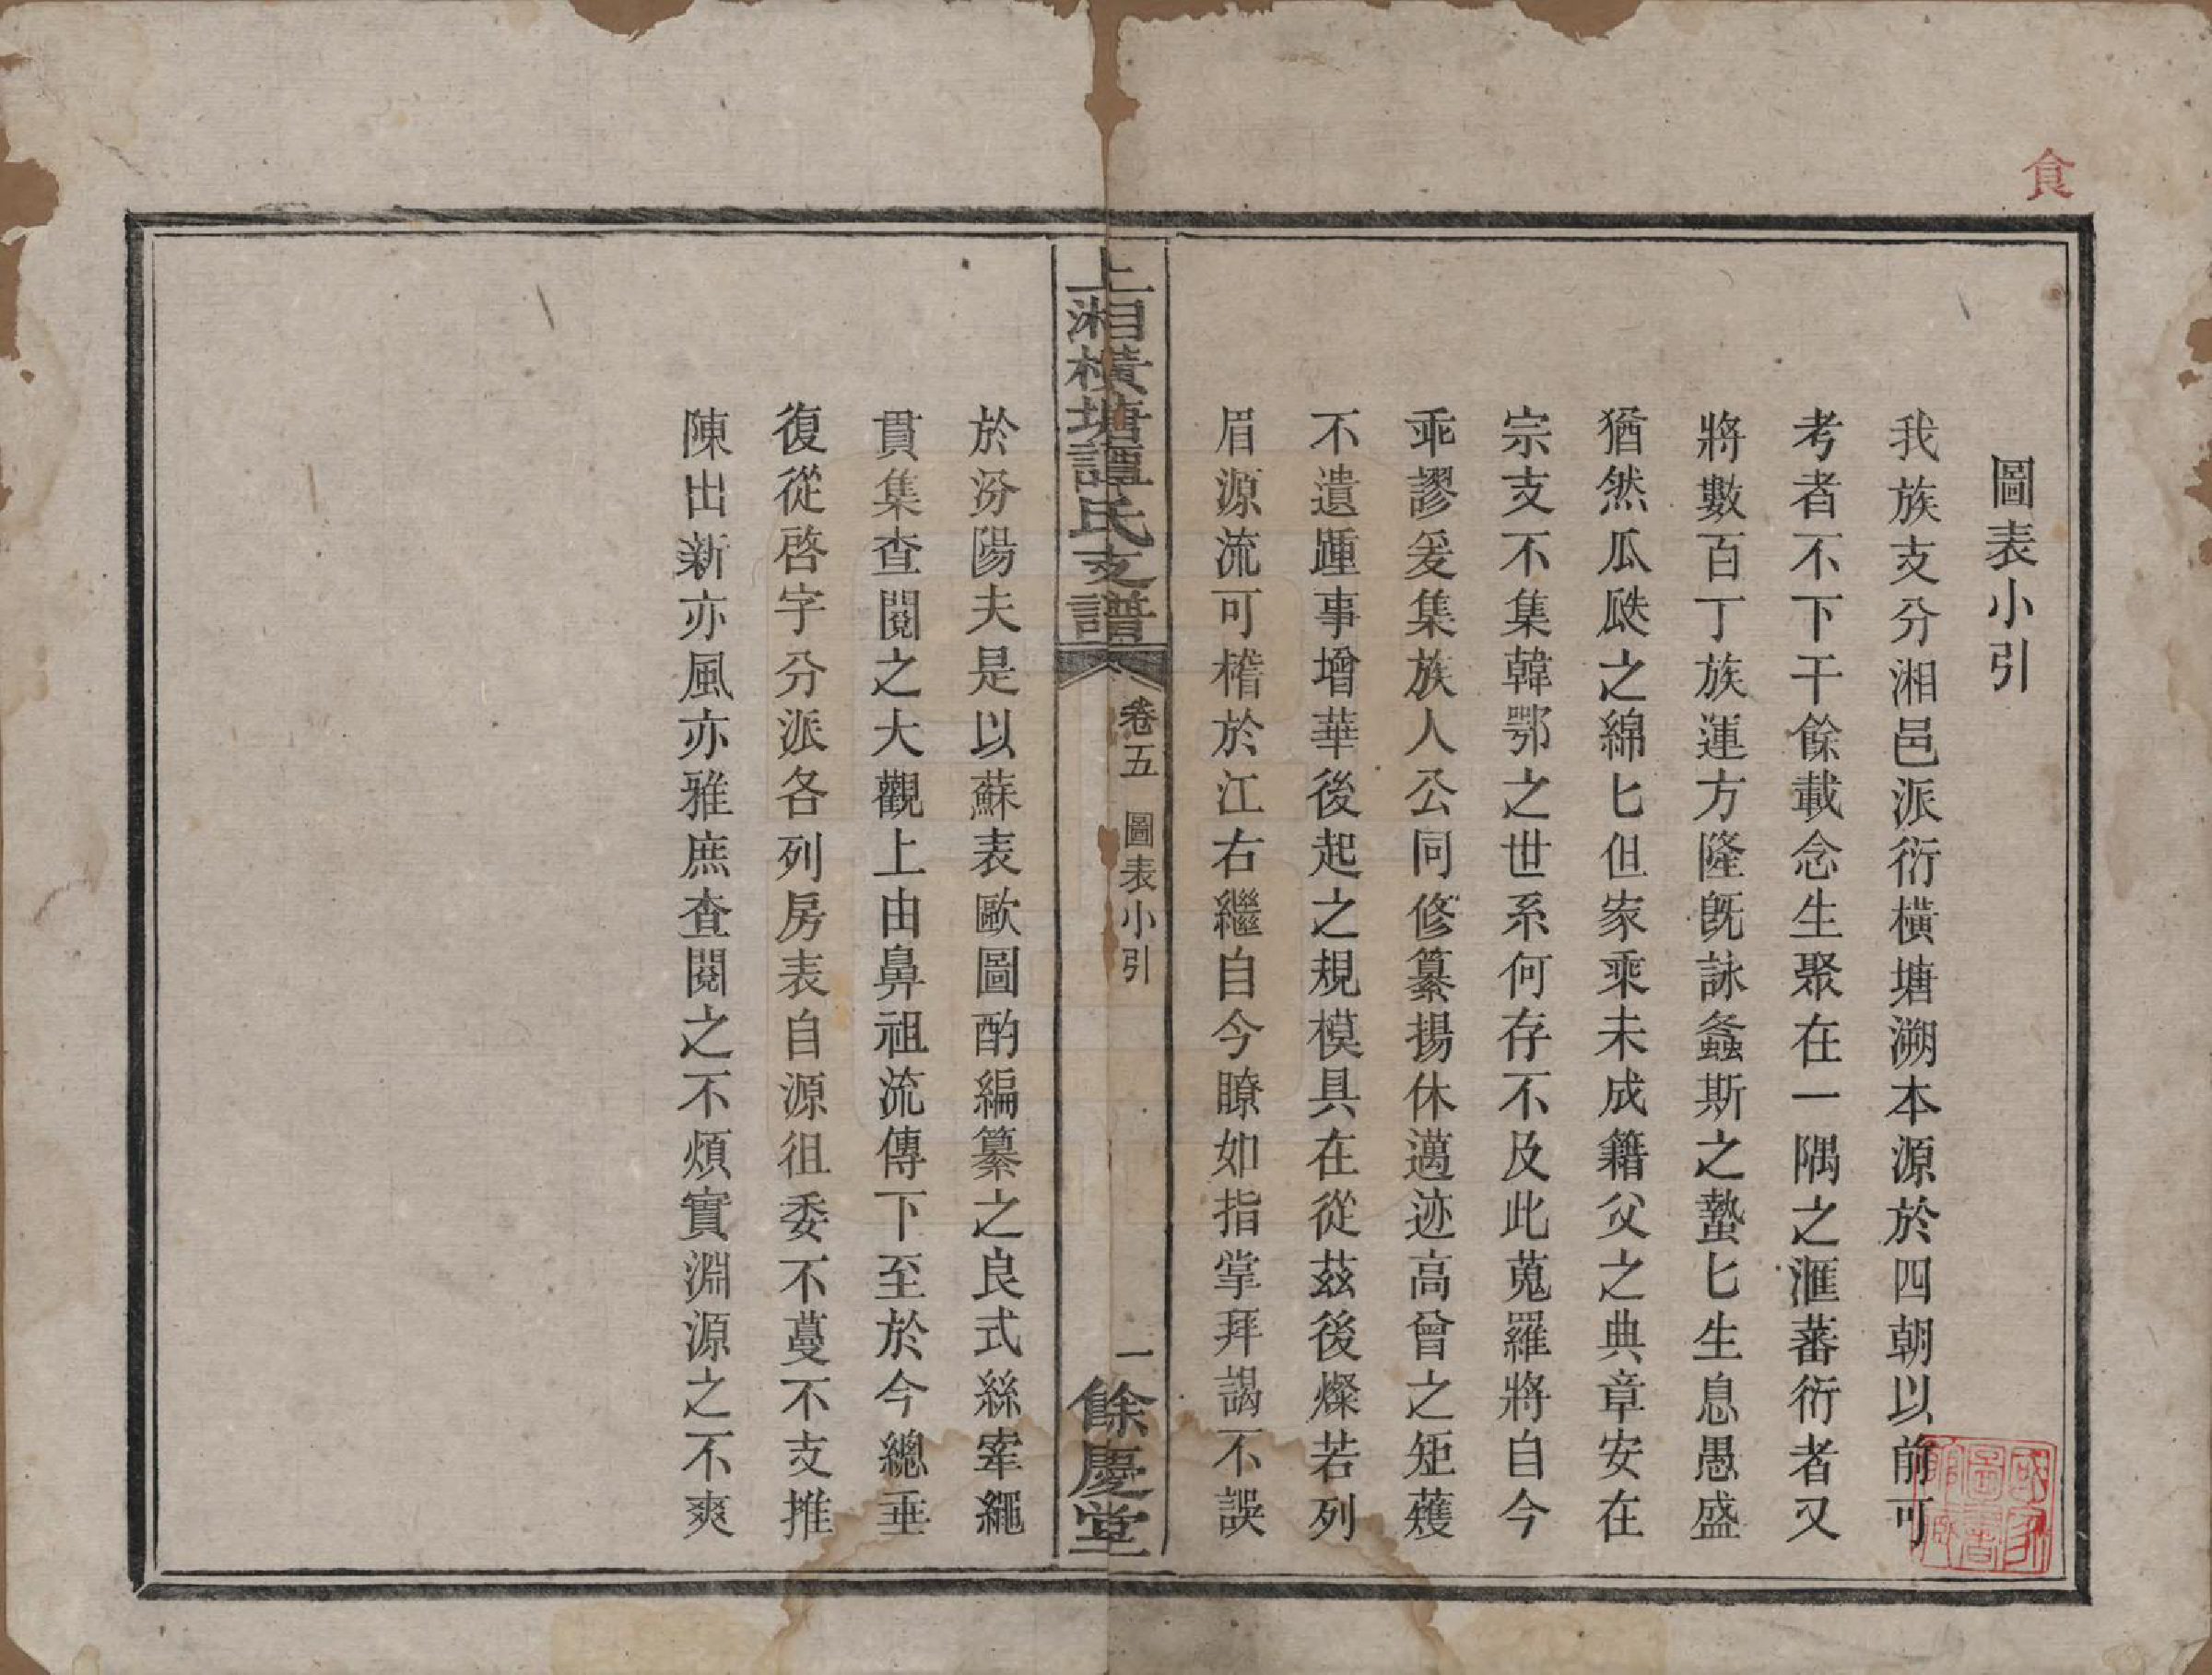 食
圖表小引
我族支分湘邑派衍橫塘溯本源於四朝以前可
考者不下干餘載念生聚在一隅之滙蕃衍者又
將數百丁族運方隆旣詠螽斯之蟄匕生息愚盛
猶然瓜瓞之綿匕但家乘未成籍父之典章安在
宗支不集韓鄂之世系何存不及此蒐羅將自今
乖謬爰集族人公同修纂揚休邁迹高曾之矩蒦
不遺踵事增華後起之規模具在從茲後燦若列
眉源流可稽於江右繼自今瞭如指掌拜謁不誤
上湘橫塘譚氏支譜
卷五 圖表小引
一
餘慶堂
於汾陽夫是以蘇表歐圖酌編纂之良式絲牽繩
貫集查閱之大觀上由鼻祖流傳下至於今總垂
復從啓字分派各列房表自源徂委不蔓不支推
陳出新亦風亦雅庶查閱之不煩實淵源之不爽
國家圖書館藏